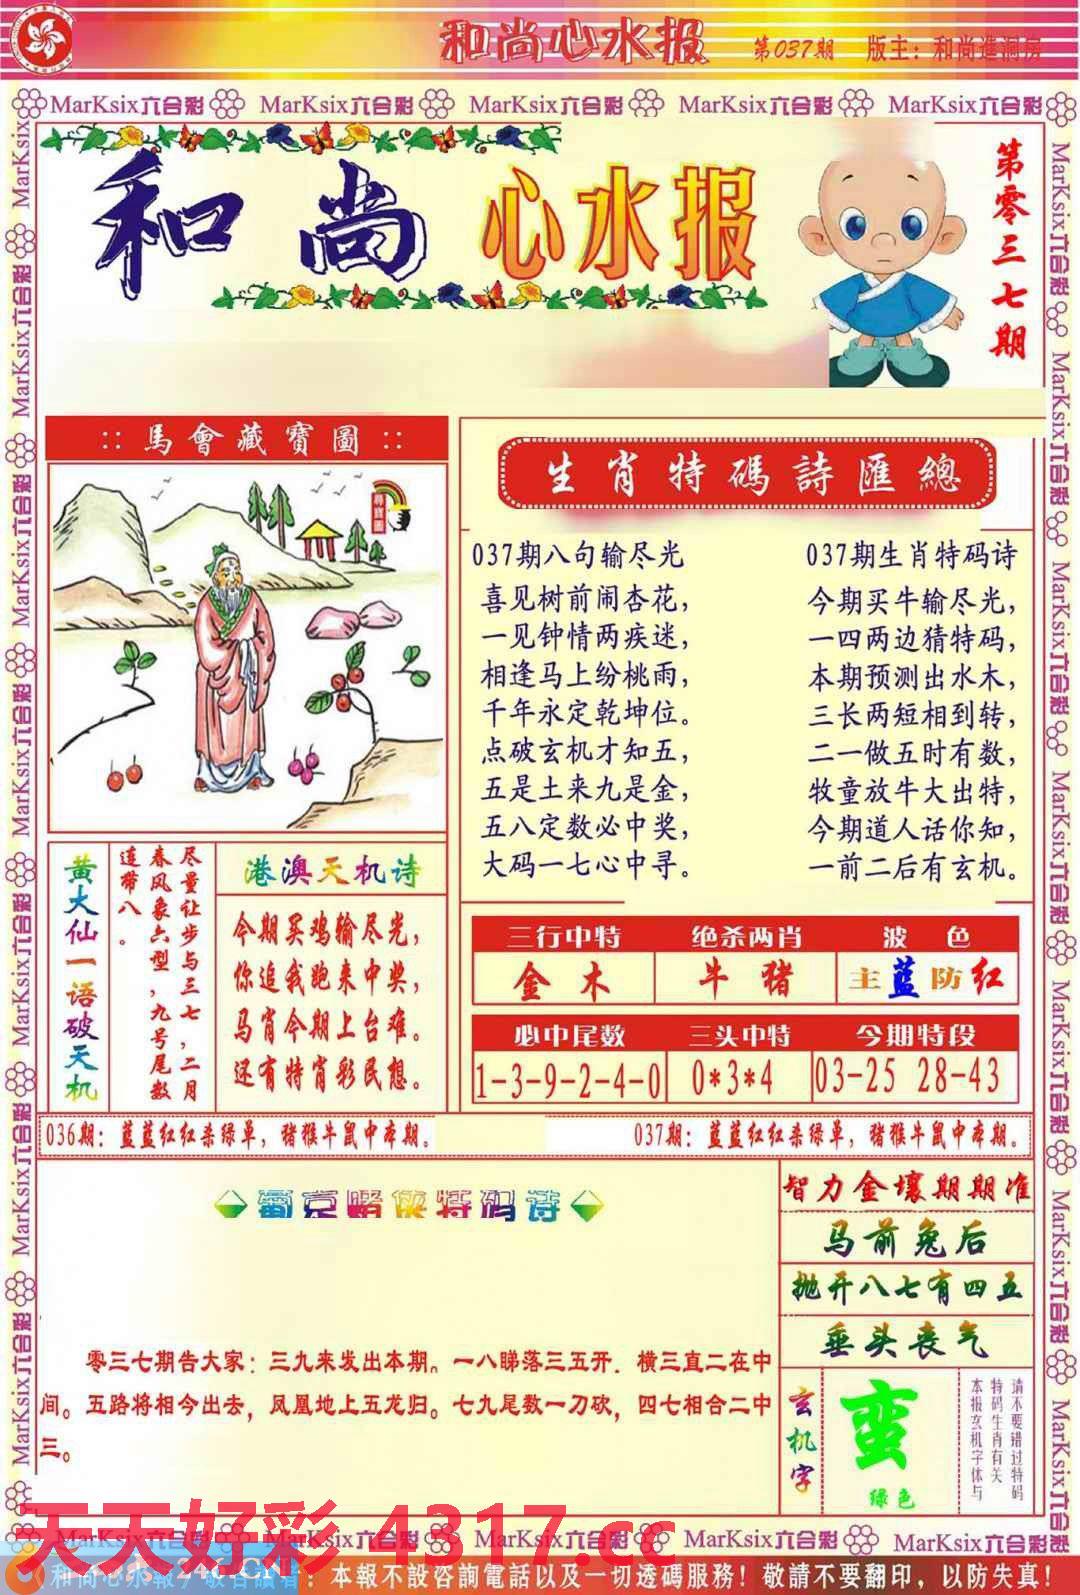 和尚心水报
第037期
版主：和尚進洞房
MarKsix六合彩 MarKsix六合彩 MarKsix六合彩 MarKsix六合彩 MarKsix六合彩
和尚 心水报
第零三七期
::馬會藏寶圖::
尋寶圖
生肖特碼詩匯總
037期八句输尽光
喜见树前闹杏花，
一见钟情两疾迷，
相逢马上纷桃雨，
千年永定乾坤位。
点破玄机才知五，
五是土来九是金，
五八定数必中奖，
大码一七心中寻。
037期生肖特码诗
今期买牛输尽光，
一四两边猜特码，
本期预测出水木，
三长两短相到转，
二一做五时有数，
牧童放牛大出特，
今期道人话你知，
一前二后有玄机。
黄大仙一语破天机
尽量让步与三七，二月
春风象六型，九号尾数
连带八。
港澳天机诗
今期买鸡输尽光，
你追我跑来中奖，
马肖今期上台难。
还有特肖彩民想。
三行中特 绝杀两肖 波色
金木 牛猪 主蓝防红
必中尾数 三头中特 今期特段
1-3-9-2-4-0 0*3*4 03-25 28-43
036期：蓝蓝红红杀绿单，猪猴牛鼠中本期。
037期：蓝蓝红红杀绿单，猪猴牛鼠中本期。
特码诗
零三七期告大家：三九来发出本期。一八睇落三五开．横三直二在中
间。五路将相今出去，凤凰地上五龙归。七九尾数一刀砍，四七相合二中
三。
智力金壤期期准
马前兔后
抛开八七有四五
垂头丧气
玄机字
蛮
绿色
请不要错过特码
特码生肖有关
本报玄机字体与
MarKsix六合彩 MarKsix六合彩 MarKsix六合彩 MarKsix六合彩 MarKsix六合彩
天天好彩 4317.cc
：本報不設咨詢電話以及一切透碼服務！敬請不要翻印，以防失真！